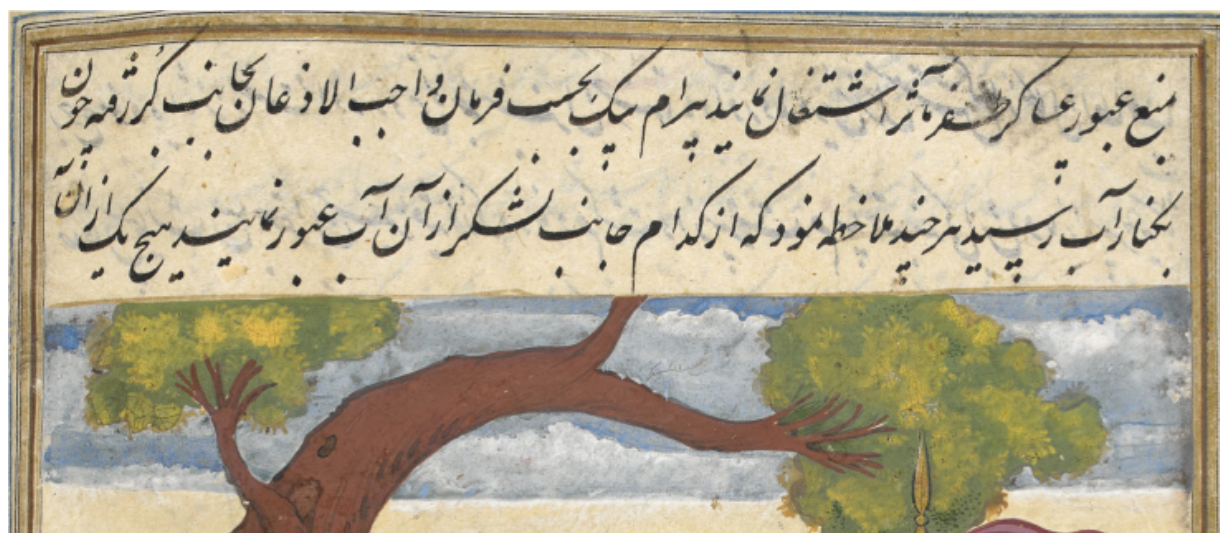 منع عبور عساکر ظفر مآثر اشتغال نمایند بیرام بیک بحسب فرمان واجب الاذعان بجانب کر رفته چون
بکنار آب رسید هر چند ملاحظه نمود که از کدام جانب لشکر از آن آب عبور نمایند هیچ یک از ان